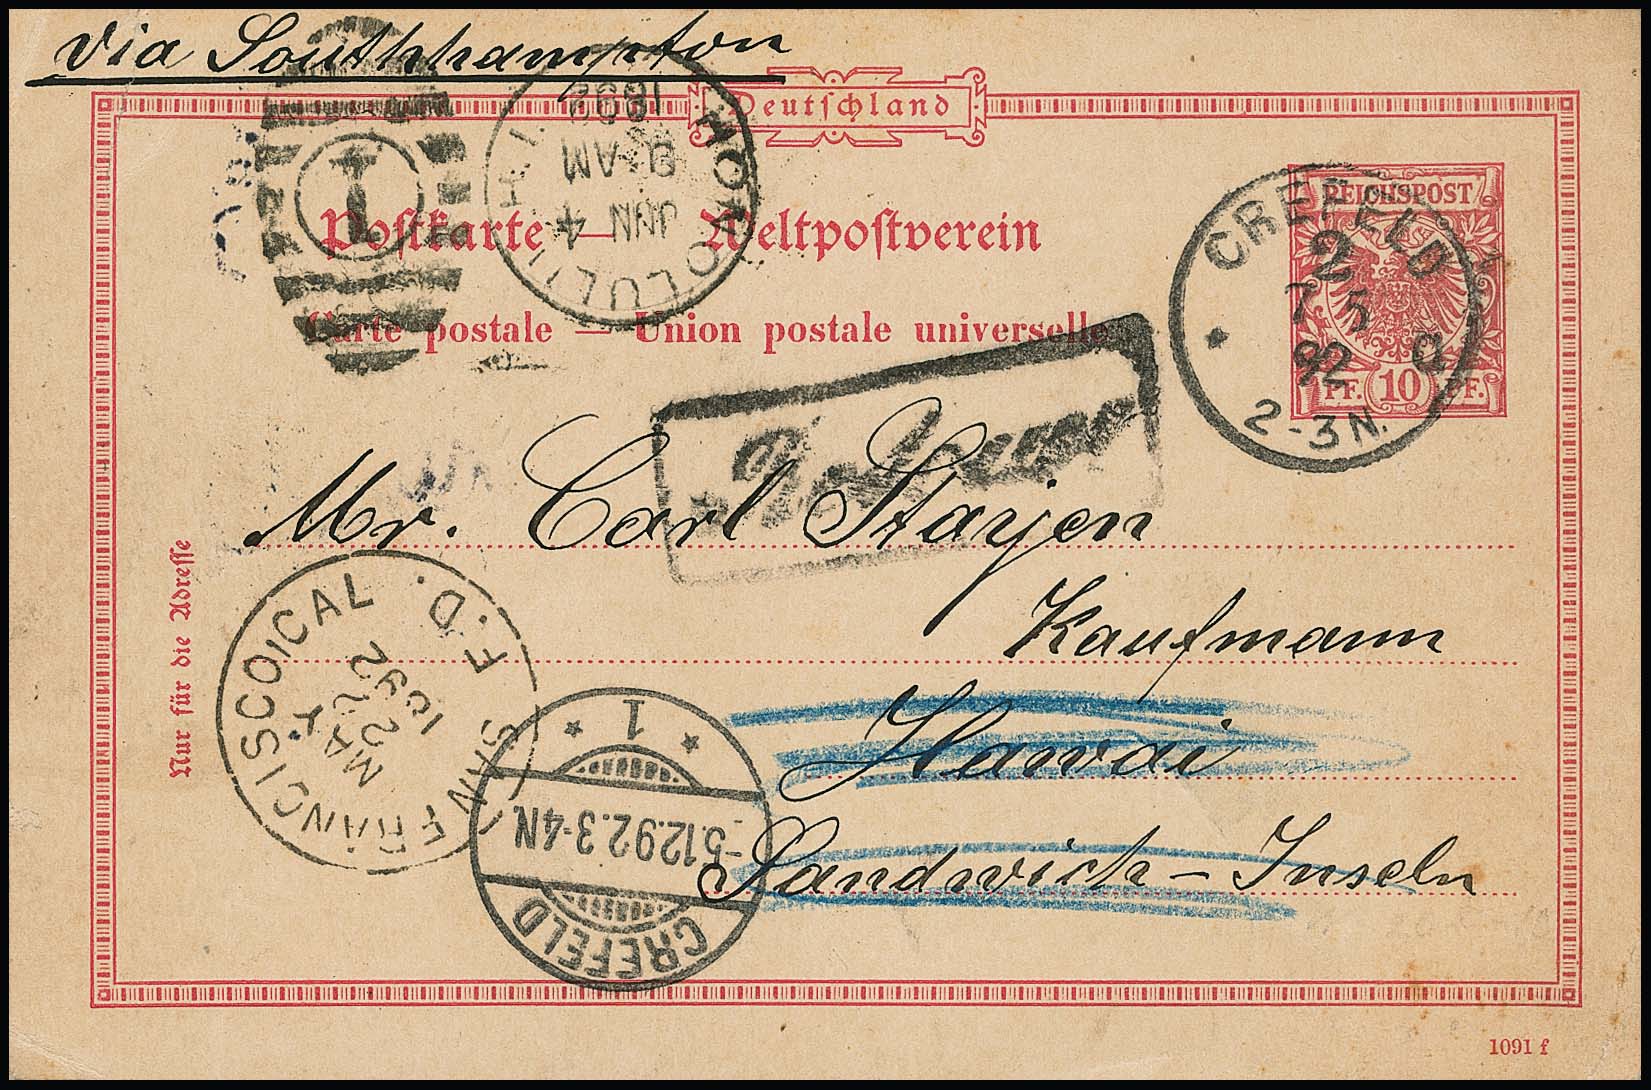 via Southhampton
Deutschland
1892
9 AM
JUN 4
HONOLULU H.I.
1
REICHSPOST
10
PF. PF.
CREFELD
2
7 5
92
2-3N.
Postkarte — Weltpostverein
Carte postale — Union postale universelle
Mr. Carl Stayen
Kaufmann
Hawai
Sandwich - Inseln
Nur für die Adresse
SAN FRANCISCO CAL F.D.
MAY
22
1892
1
-5.12.92.3-4N.
CREFELD
1091 f